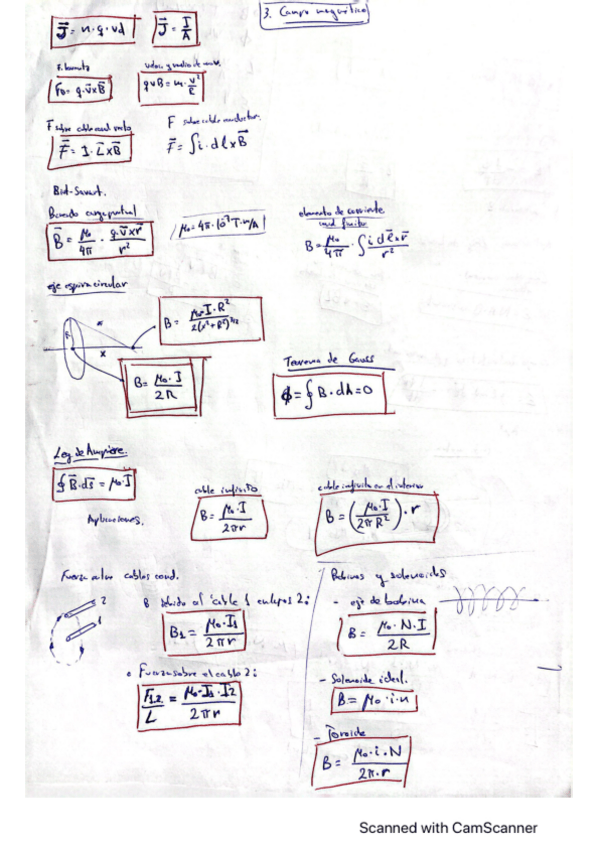 3. Campo magnético
J⃗ = n · q · vd
J⃗ = I/A
F. Lorentz
F₀ = q · v⃗ x B⃗
qvB = m · v²/R
F sobre cable cond. recto
F⃗ = I · L⃗ x B⃗
F sobre cable conductor.
F⃗ = ∫ i · dl x B⃗
Biot-Savart.
B creado carga puntual
B⃗ = μ₀/4π · q · v⃗ x r⃗ / r²
μ₀ = 4π · 10⁻⁷ T · m/A
elemento de corriente
B = μ₀/4π · ∫ i dl⃗ x r⃗ / r²
eje espira circular
R
x
B = μ₀ · I · R² / 2(x² + R²)^3/2
B = μ₀ · I / 2R
Teorema de Gauss
ϕ = ∮ B · dA = 0
Ley de Ampere.
∮ B⃗ · ds⃗ = μ₀ · I
Aplicaciones.
cable infinito
B = μ₀ · I / 2πr
cable infinito en el interior
B = (μ₀ · I / 2πR²) · r
Fuerza cables cond.
2
1
B debido al cable 1 en 2:
B₁ = μ₀ · I₁ / 2πr
Fuerza sobre el cable 2:
F₁₂/L = μ₀ · I₁ · I₂ / 2πr
Bobinas y solenoides
- eje de bobina
B = μ₀ · N · I / 2R
- Solenoide ideal.
B = μ₀ · i · n
- Toroide
B = μ₀ · i · N / 2π · r
Scanned with CamScanner